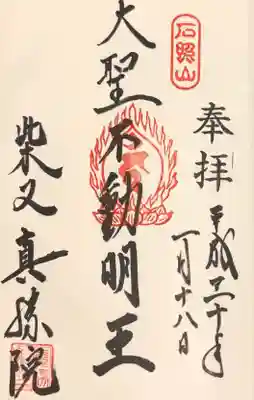 石照山
奉拝
平成二十年
一月十八日
大聖不動明王
柴又真勝院